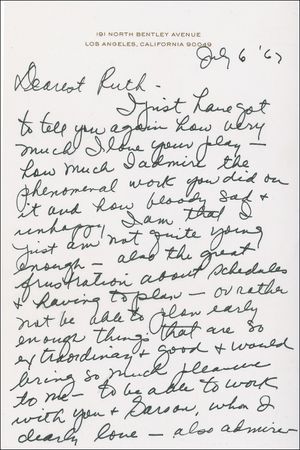 191 NORTH BENTLEY AVENUE
LOS ANGELES, CALIFORNIA 90049
July 6 '67
Dearest Ruth -
I just have got
to tell you again how very
much I love your play -
how much I admire the
phenomenal work you did on
it and how bloody sad &
unhappy I am that I
just am not quite young
enough - also the great
frustration about schedules
& having to plan - or rather
not be able to plan early
enough things that are so
extraordinary & good & would
bring so much pleasure
to me - to be able to work
with you & Garson, whom I
dearly love - also admire -